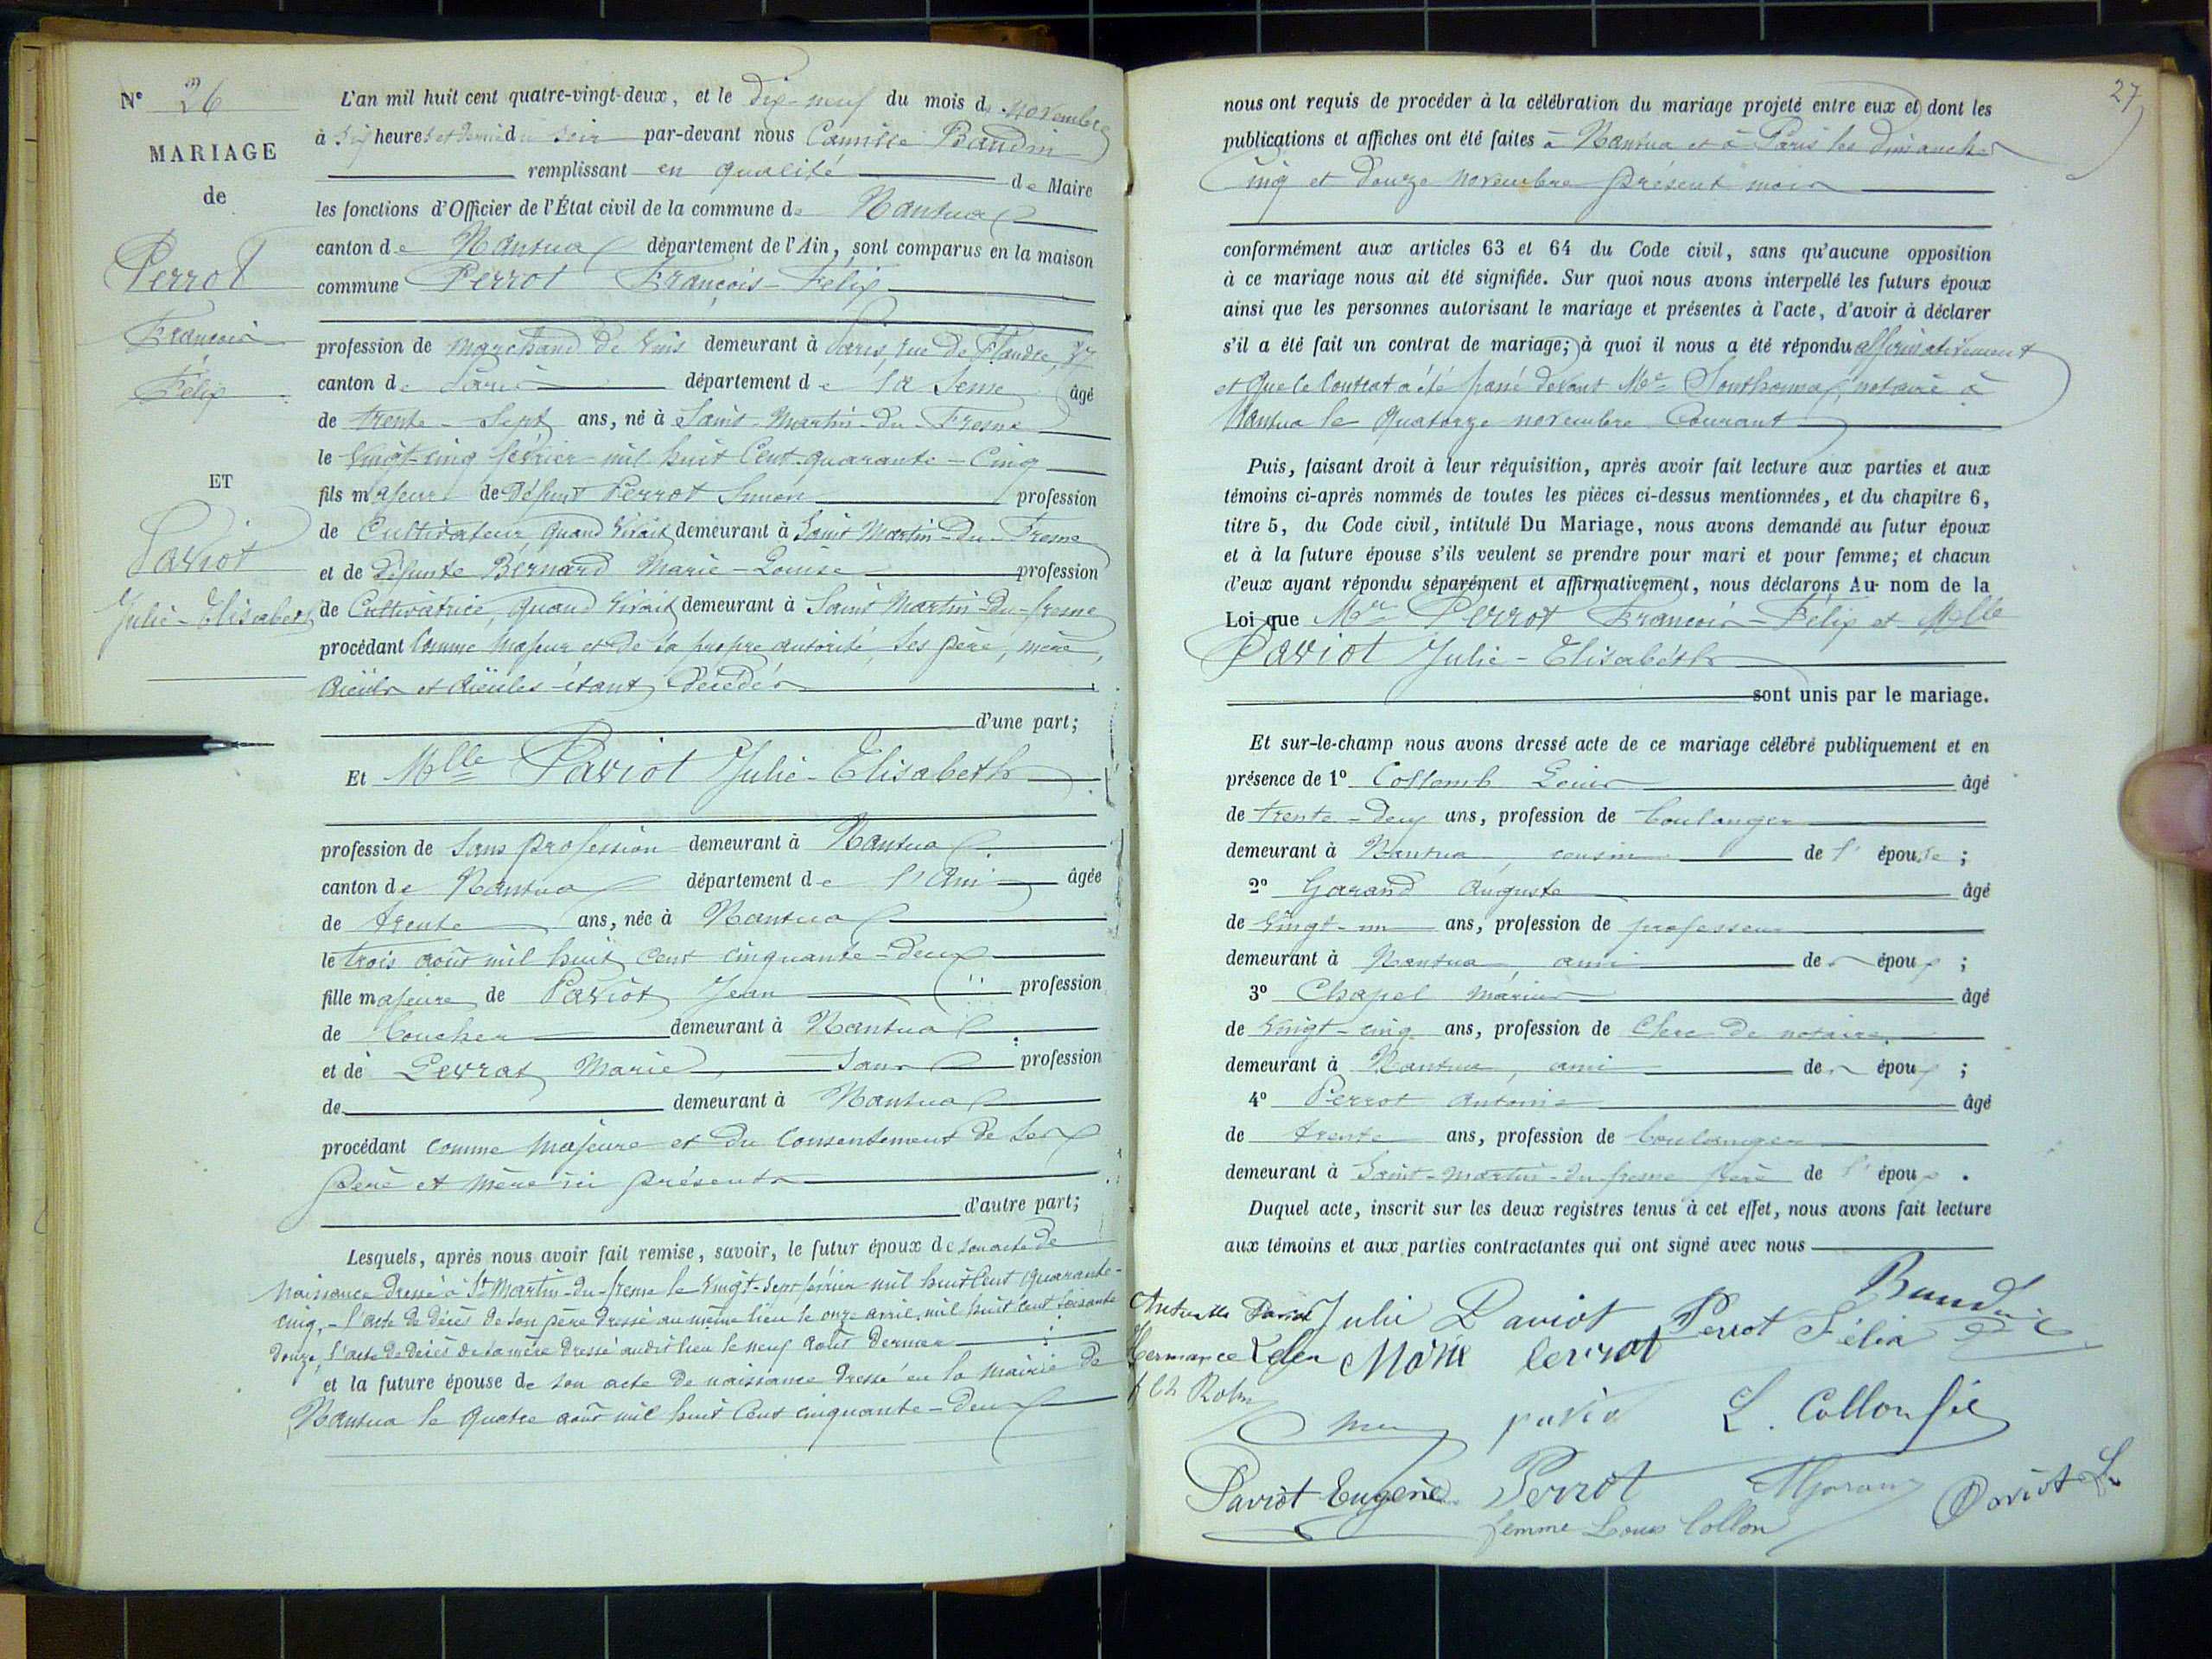 N° 26
MARIAGE
de
Perrot
François
Félix
ET
Paviot
Julie-Elisabeth
L'an mil huit cent quatre-vingt-deux, et le dix-neuf du mois de novembre
à six heures et demie du soir par-devant nous Camille Baudin
remplissant en qualité de Maire
les fonctions d'Officier de l'État civil de la commune de Nantua
canton de Nantua département de l'Ain, sont comparus en la maison
commune Perrot François-Félix
profession de marchand de vins demeurant à Paris, rue de Flandre, 37
canton de Paris département de la Seine âgé
de trente-sept ans, né à Saint-Martin-du-Fresne
le vingt-cinq février mil huit cent quarante-cinq
fils majeur de défunt Perrot Simon profession
de cultivateur quand vivait demeurant à Saint Martin-du-Fresne
et de défunte Bernard Marie-Louise profession
de cultivatrice, quand vivait demeurant à Saint Martin-du-fresne
procédant comme majeur et de sa propre autorité, ses père, mère,
aïeuls et aïeules étant décédés
d'une part;
Et Mlle Paviot Julie-Elisabeth
profession de sans profession demeurant à Nantua
canton de Nantua département de l'Ain âgée
de trente ans, née à Nantua
le trois août mil huit cent cinquante-deux
fille majeure de Paviot Jean profession
de boucher demeurant à Nantua
et de Levrat Marie, sans profession
de demeurant à Nantua
procédant comme majeure et du consentement de ses
père et mère ici présents
d'autre part;
Lesquels, après nous avoir fait remise, savoir, le futur époux de son acte de
naissance dressé à St Martin-du-fresne le vingt-sept février mil huit cent quarante-
cinq, - l'acte de décès de son père dressé au même lieu le onze avril mil huit cent soixante
douze, l'acte de décès de sa mère dressé audit lieu le neuf août dernier
et la future épouse de son acte de naissance dressé en la mairie de
Nantua le quatre août mil huit cent cinquante-deux
27
nous ont requis de procéder à la célébration du mariage projeté entre eux et dont les
publications et affiches ont été faites à Nantua et à Paris les dimanches
cinq et douze novembre présent mois
conformément aux articles 63 et 64 du Code civil, sans qu'aucune opposition
à ce mariage nous ait été signifiée. Sur quoi nous avons interpellé les futurs époux
ainsi que les personnes autorisant le mariage et présentes à l'acte, d'avoir à déclarer
s'il a été fait un contrat de mariage; à quoi il nous a été répondu affirmativement
et que le contrat a été passé devant Me Southonnax, notaire à
Nantua le quatorze novembre courant
Puis, faisant droit à leur réquisition, après avoir fait lecture aux parties et aux
témoins ci-après nommés de toutes les pièces ci-dessus mentionnées, et du chapitre 6,
titre 5, du Code civil, intitulé Du Mariage, nous avons demandé au futur époux
et à la future épouse s'ils veulent se prendre pour mari et pour femme; et chacun
d'eux ayant répondu séparément et affirmativement, nous déclarons Au nom de la
Loi que Mr Perrot François-Félix et Mlle
Paviot Julie-Elisabeth
sont unis par le mariage.
Et sur-le-champ nous avons dressé acte de ce mariage célébré publiquement et en
présence de 1° Collomb Louis âgé
de trente-deux ans, profession de boulanger
demeurant à Nantua, cousin de l'épouse;
2° Garand Auguste âgé
de vingt-un ans, profession de professeur
demeurant à Nantua, ami des époux;
3° Chapel Marius âgé
de vingt-cinq ans, profession de clerc de notaire
demeurant à Nantua, ami des époux;
4° Perrot Antoine âgé
de trente ans, profession de boulanger
demeurant à Saint-Martin-du-fresne frère de l'époux.
Duquel acte, inscrit sur les deux registres tenus à cet effet, nous avons fait lecture
aux témoins et aux parties contractantes qui ont signé avec nous
Paviot Julie Paviot Perrot Félix Baudin
Hermance Marie levrat
L. Collon
Paviot Eugène Perrot Paviot L
femme Louis Collon